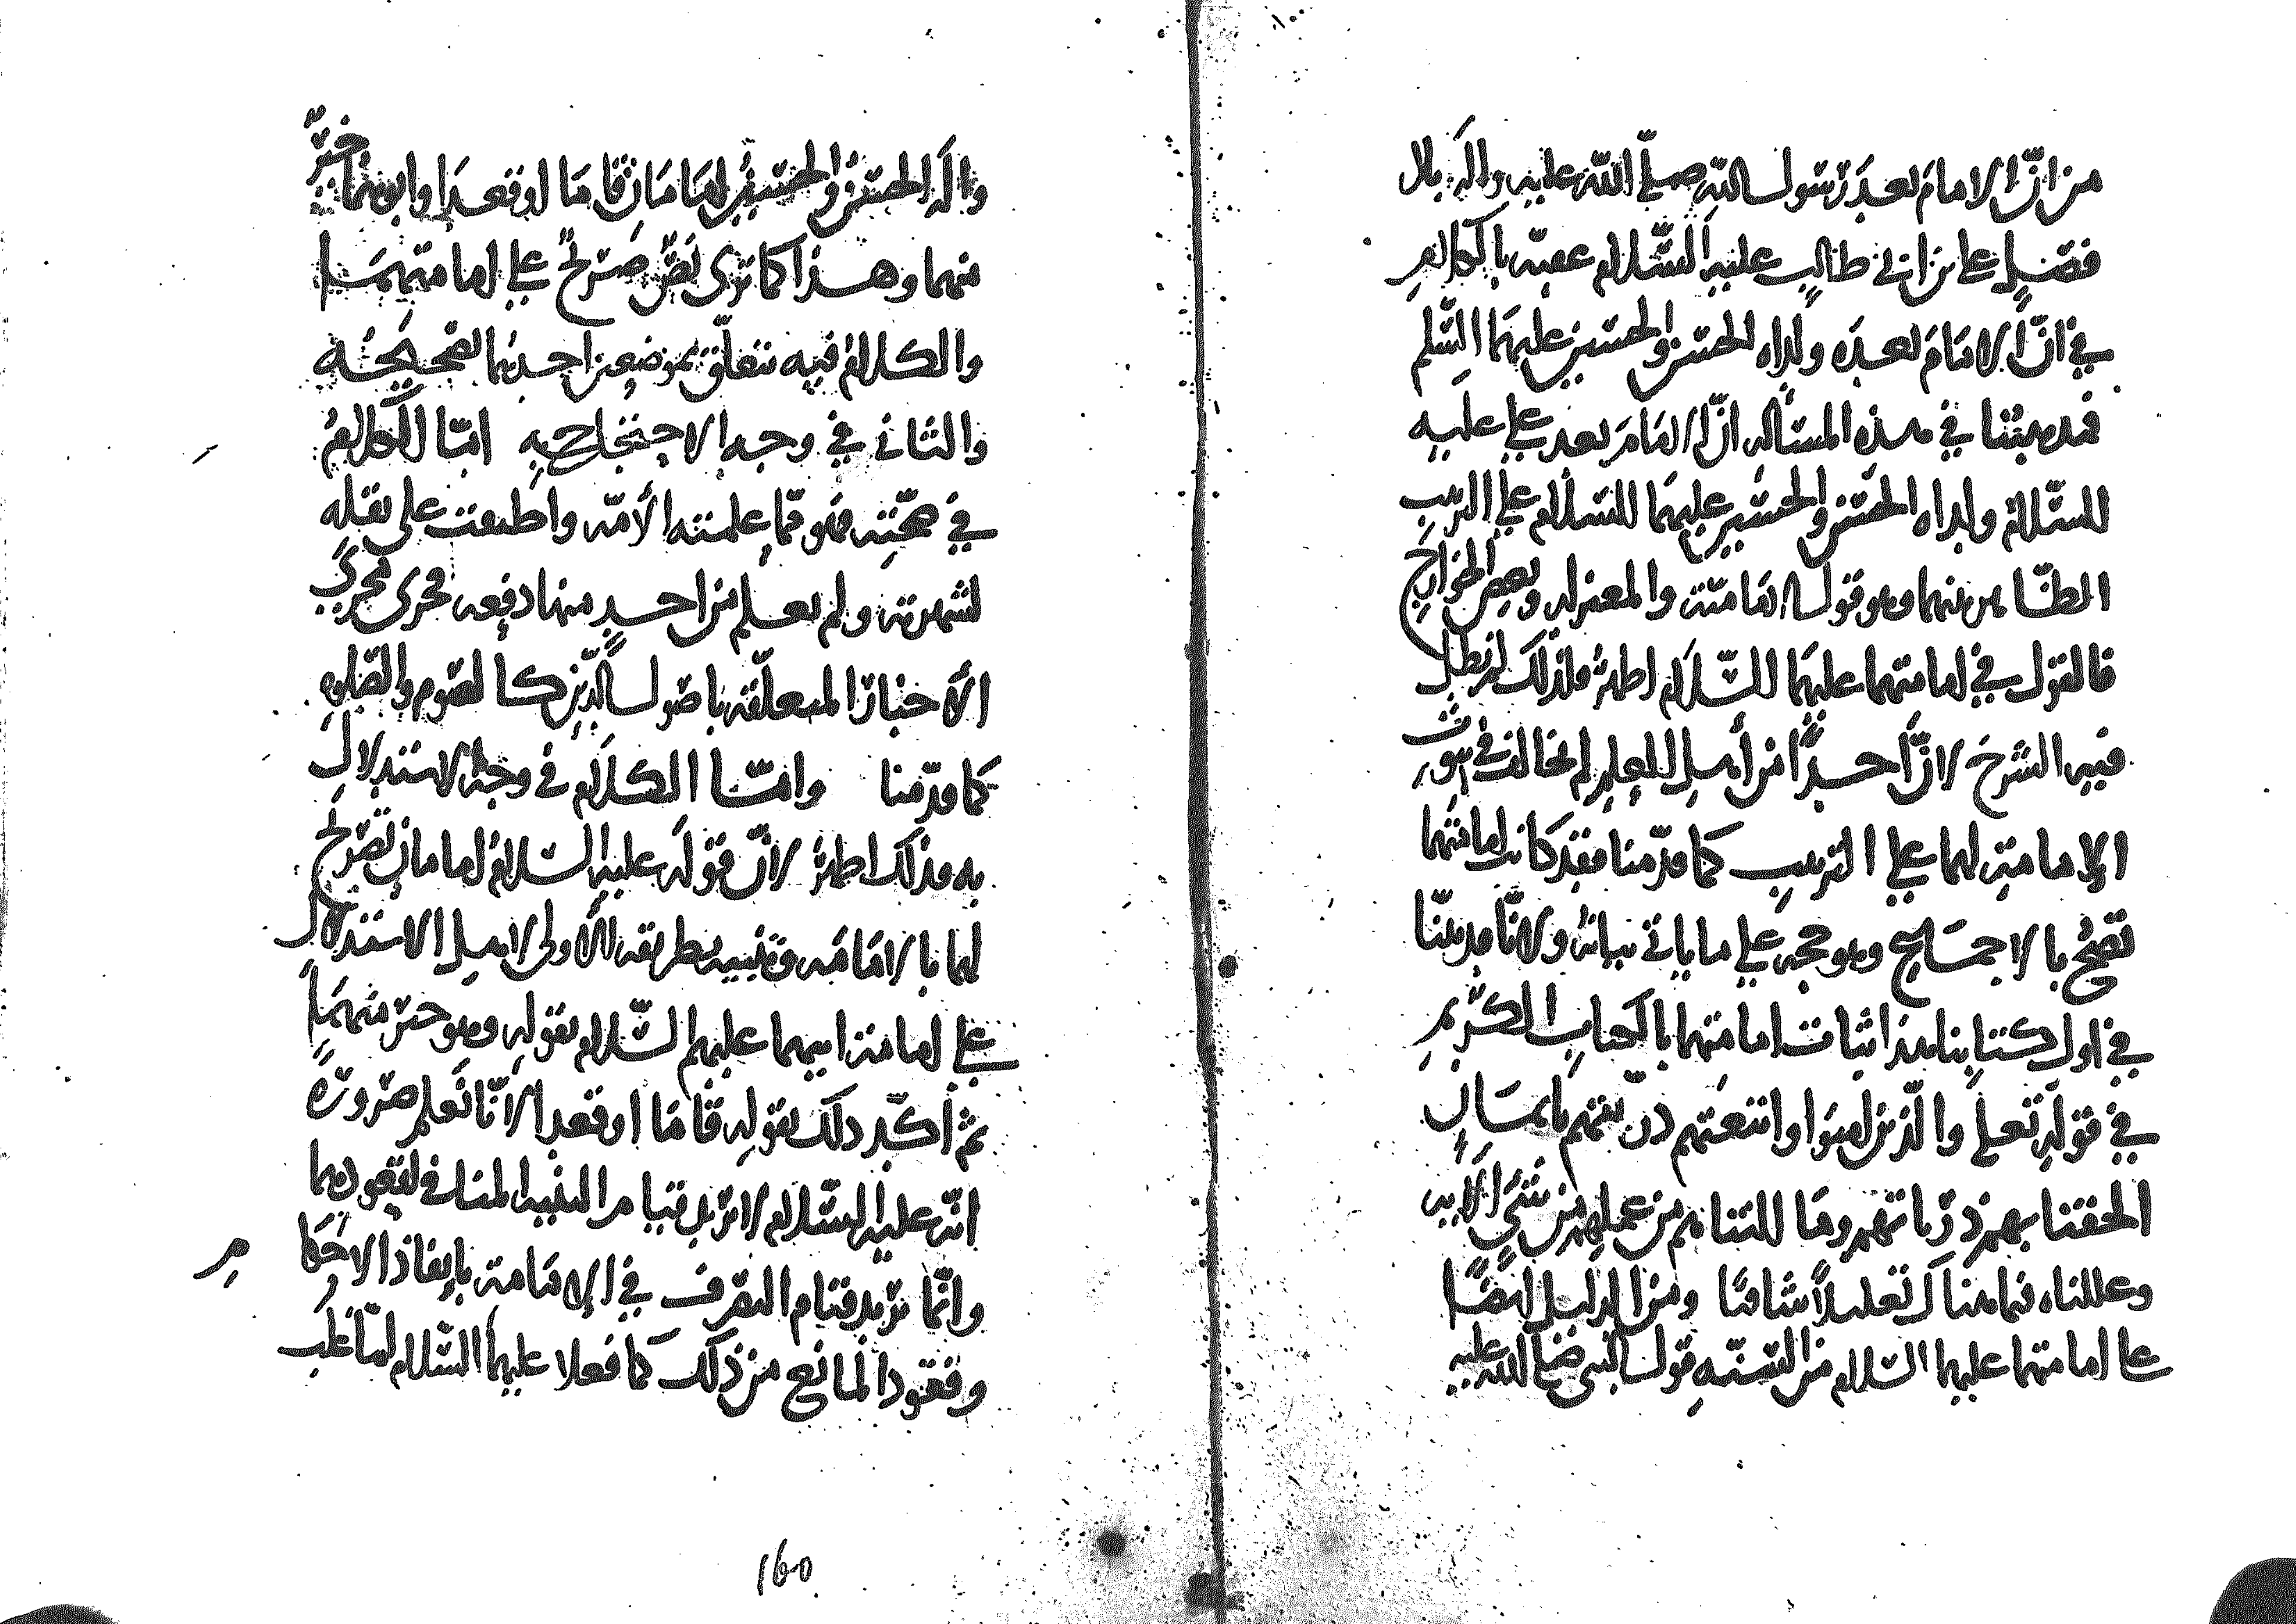 من انّ الامام بعد رسول الله صلّى الله عليه وآله بلا
فصل علي بن ابي طالب عليه السّلام عقبه بالكلام
في انّ الامام بعده ولداه الحسن والحسين عليهما السّلم
فمذهبنا في هذه المسألة انّ الامام بعد علي عليه
السّلام ولداه الحسن والحسين عليهما السّلام علي الترتيب
الظاهر منهما وهو قول الامامية والمعتزله وبعض الخوارج
فالقول في امامتهما عليهما السّلام اظهر فلذلك لم نطل
فيه الشرح لانّ احداً من أهل العلم لم يخالف في ثبوت
الإمامة لهما علي الترتيب كما قدّمنا فقد كانت امامتهما
تصحّ بالاجماع وهو حجه علي ما ياتي بيانه ولانّا قد بيّنّا
في اول كتابنا هذا اثبات امامتهما بالكتاب الكريم
في قوله تعلى والّذين امنوا واتبعتهم ذريّتهم بايمان
الحقنا بهم ذرياتهم وما التناهم من عملهم من شي الايه
وعللناه فيما هناك تعليلاً شافيًا ومن الدليل ايضًا
على امامتهما عليهما السّلام من السّنّه قول النبي صلى الله عليه
وآله الحسن والحسين امامان قاما او قعدا وابوهما خير
منهما وهذا كما ترى نصّ صريح علي امامتهما
والكلام فيه يتعلّق بموضعين احدهما تصحيحه
والثاني في وجه الاحتجاج به امّا الكلام
في صحّته فهو ممّا علمته الأمّه واطبقت على نقله
لشهرته ولم يعلم من احد منها دفعه فجرى مجرى
الاخبار المتعلّقه باصول الدّين كالصوم والصّلوه
كما قدّمنا وامّا الكلام في وجه الاستدلال
به فذلك اظهر لانّ قوله عليه السّلام امامان تصريح
لهما بالامامه وتنبيه بطريقه الأولى لاهل الاستدلال
علي امامة ابيهما عليهم السّلام بقوله وهو خير منهما
ثم أكّد ذلك بقوله قاما او قعدا لأنّا نعلم ضرورة
انّه عليه السّلام لا يريد قيام البنيه المنافي لقعودهما
وانّما يريد قيام التصرف في الإمامة بإنفاذ الاحكام
وقعود المانع من ذلك كما فعلا عليهما السّلام لمّا غلب
160